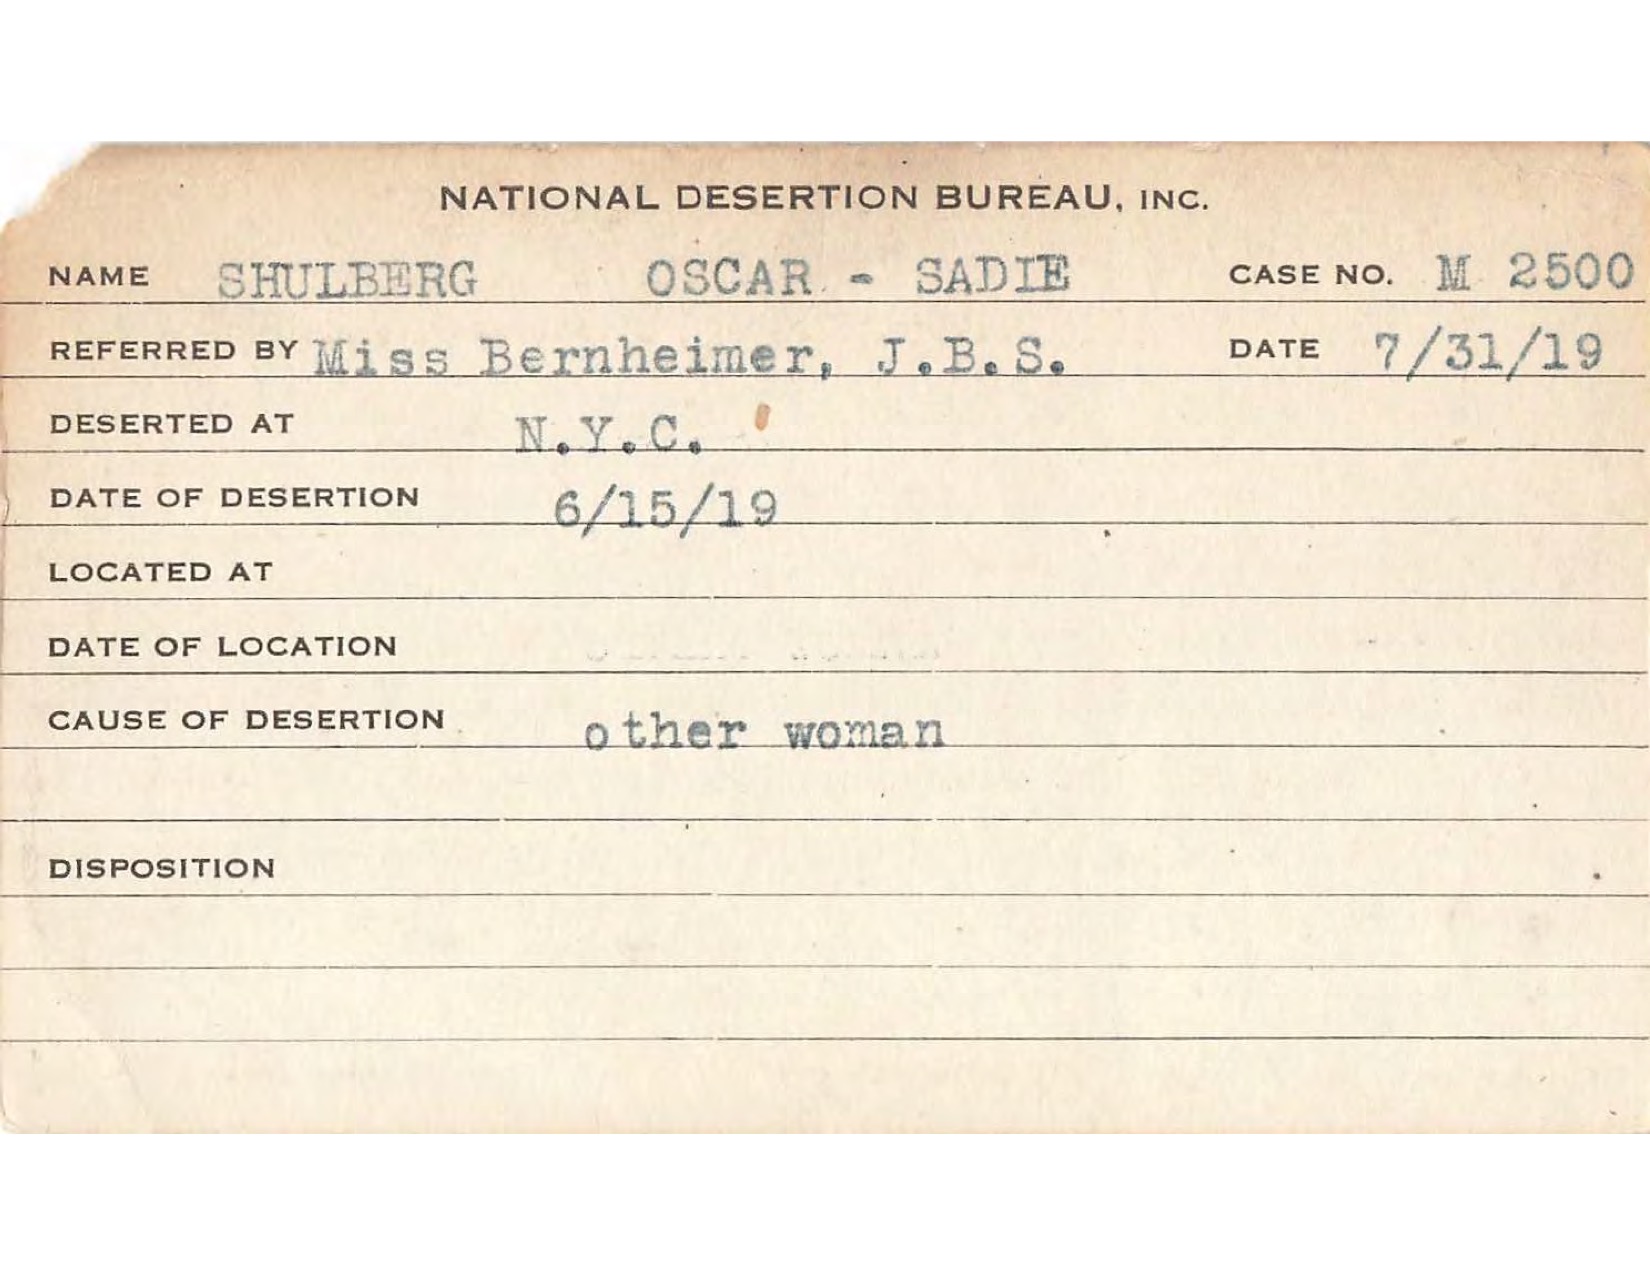 NATIONAL DESERTION BUREAU, INC.
NAME SHULBERG OSCAR - SADIE CASE NO. M 2500
REFERRED BY Miss Bernheimer, J.B.S. DATE 7/31/19
DESERTED AT N.Y.C.
DATE OF DESERTION 6/15/19
LOCATED AT
DATE OF LOCATION
CAUSE OF DESERTION other woman
DISPOSITION